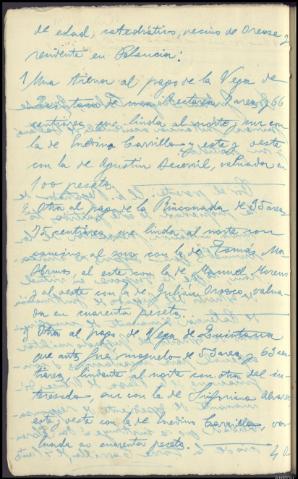 de edad, catedrático, vecino de Orense
residente en Palencia:
1 Una tierra al pago de la Vega de
66
centiáreas que linda al norte, sur con
la de Carrillo y este y oeste
con la de Agustín valuada en
100 pesetas
2 Otra al pago de la Rinconada de 35 áreas
75 centiáreas que linda al norte con
al sur con la de Tomás
al este con la de Manuel Moreno
y al oeste con la de Julián Orozco, valua-
da en cuarenta pesetas.
y Otra al pago de Vega de Quintana
que antes fué majuelo de 53 áreas y 63 cen-
tiáreas, lindante al norte con otra del in-
teresado, sur con la de Álvarez
este y oeste con la de Carrillo, va-
luada en cuarenta pesetas.